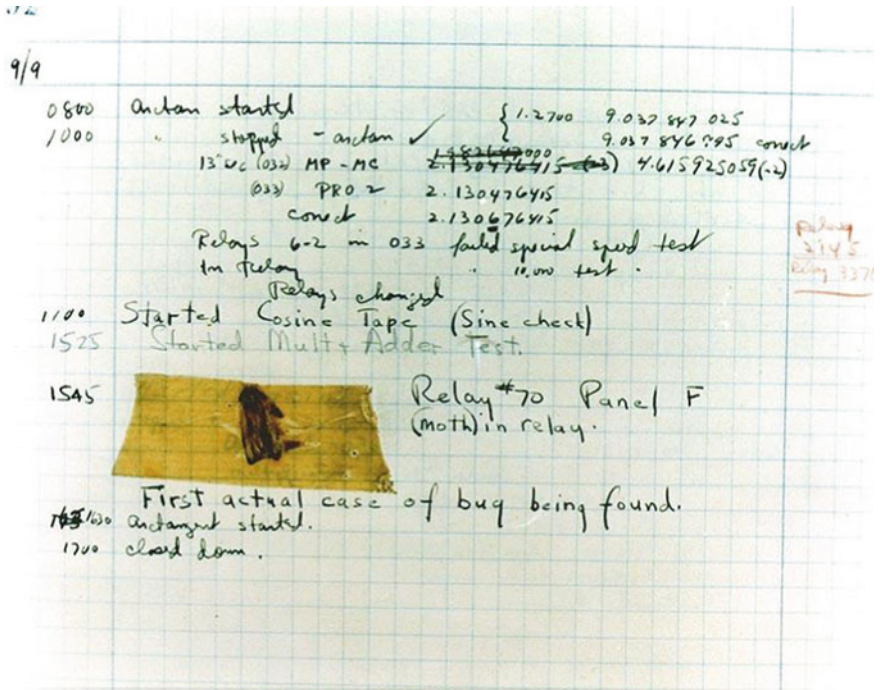 9/9
0800 arctan started { 1.2700 9.037 847 025
1000 " stopped - arctan ✓ { 9.037 846 795 correct
13"uc (032) MP - MC 2.130476415 (-3) 4.615925059(-2)
(033) PRO 2 2.130476415
correct 2.130676415
Relays 6-2 in 033 failed special speed test
In Relay " 10.000 test .
Relays changed
Relay
2145
Relay 3370
1100 Started Cosine Tape (Sine check)
1525 Started Mult + Adder Test.
1545 Relay #70 Panel F
(moth) in relay.
First actual case of bug being found.
1630 arctangent started.
1700 closed down .